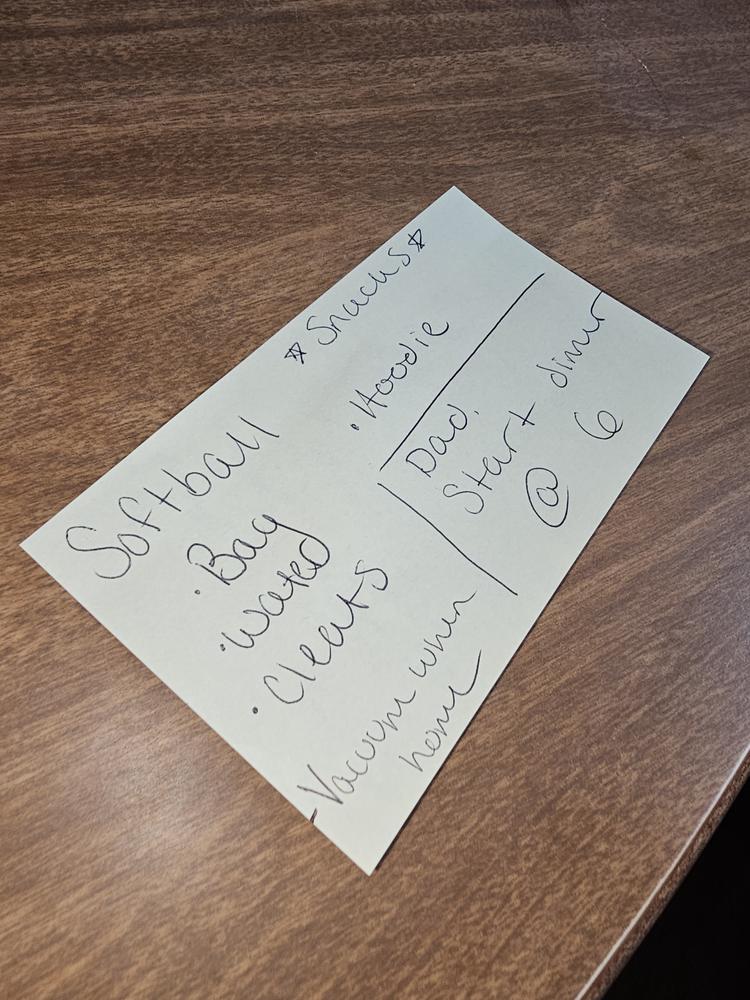 Softball
☆ Snacks ☆
· Bag
· Water
· Cleats
· Hoodie
- Vacuum when
home
Dad,
Start dinner
@ 6